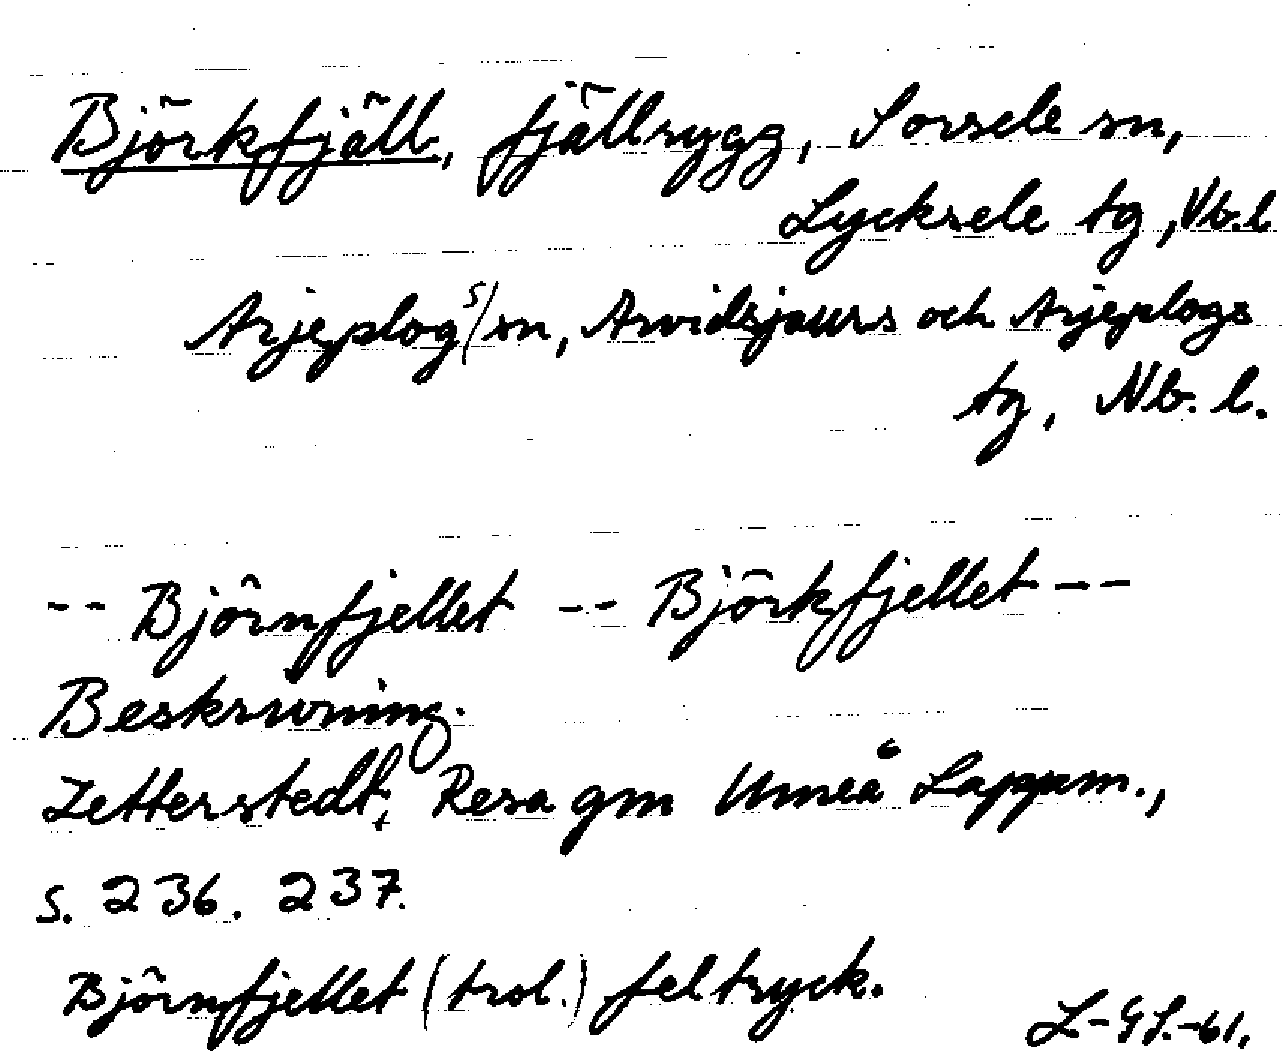 Björkfjäll, fjällrygg, Sorsele sn,
Lycksele tg, Vb.l
Arjeplogs/sn, Arvidsjaurs och Arjeplogs
tg, Nb. l.
-- Björnfjellet -- Björkfjellet --
Beskrivning.
Zetterstedt, Resa gm Umeå Lappm.,
s. 236. 237.
Björnfjellet (trol.) feltryck.
L-GS.-61.